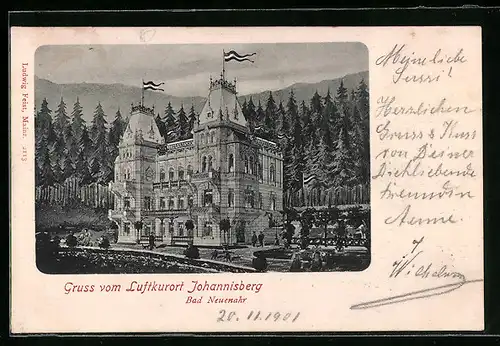 Ludwig Feist, Mainz. 2113
Meine liebe
Susi!
Herzlichen
Gruss & Kuss
von Deiner
Dichliebende
Freundin
Anne.
Wilhelm
Gruss vom Luftkurort Johannisberg
Bad Neuenahr
20.11.1901